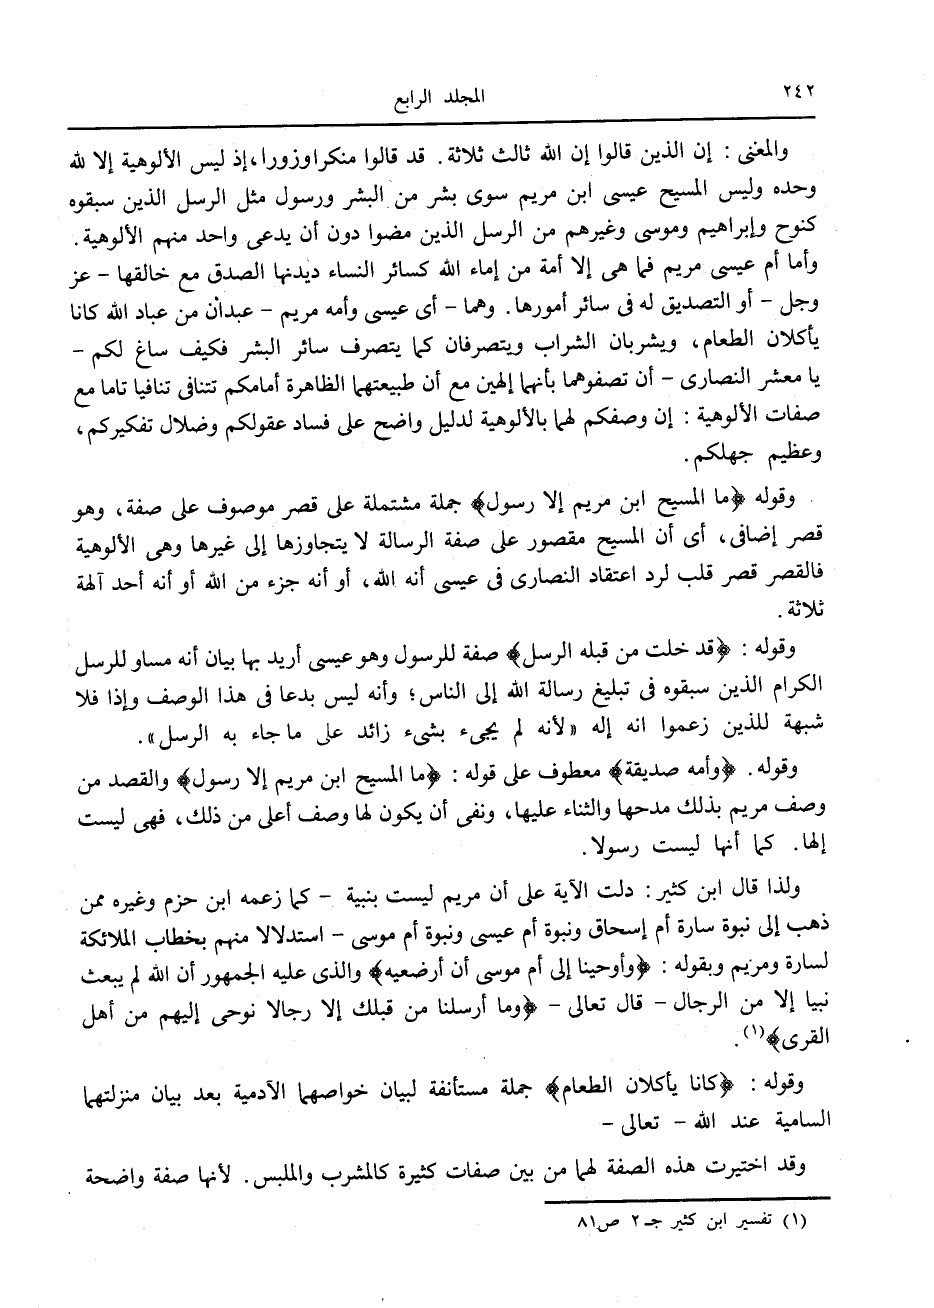 ٢٤٢
المجلد الرابع
والمعنى : إن الذين قالوا إن الله ثالث ثلاثة . قد قالوا منكرا وزورا، إذ ليس الألوهية إلا لله
وحده وليس المسيح عيسى ابن مريم سوى بشر من البشر ورسول مثل الرسل الذين سبقوه
كنوح وإبراهيم وموسى وغيرهم من الرسل الذين مضوا دون أن يدعى واحد منهم الألوهية .
وأما أم عيسى مريم فما هى إلا أمة من إماء الله كسائر النساء ديدنها الصدق مع خالقها - عز
وجل - أو التصديق له فى سائر أمورها . وهما - أى عيسى وأمه مريم - عبدان من عباد الله كانا
يأكلان الطعام ، ويشربان الشراب ويتصرفان كما يتصرف سائر البشر فكيف ساغ لكم -
يا معشر النصارى - أن تصفوهما بأنهما إلهين مع أن طبيعتهما الظاهرة أمامكم تتنافى تنافيا تاما مع
صفات الألوهية : إن وصفكم لهما بالألوهية لدليل واضح على فساد عقولكم وضلال تفكيركم ،
وعظيم جهلكم .
وقوله ﴿ما المسيح ابن مريم إلا رسول﴾ جملة مشتملة على قصر موصوف على صفة ، وهو
قصر إضافى ، أى أن المسيح مقصور على صفة الرسالة لا يتجاوزها إلى غيرها وهى الألوهية
فالقصر قصر قلب لرد اعتقاد النصارى فى عيسى أنه الله ، أو أنه جزء من الله أو أنه أحد آلهة
ثلاثة .
وقوله : ﴿قد خلت من قبله الرسل﴾ صفة للرسول وهو عيسى أريد بها بيان أنه مساو للرسل
الكرام الذين سبقوه فى تبليغ رسالة الله إلى الناس ؛ وأنه ليس بدعا فى هذا الوصف وإذا فلا
شبهة للذين زعموا انه إله «لأنه لم يجىء بشىء زائد على ما جاء به الرسل» .
وقوله . ﴿وأمه صديقة﴾ معطوف على قوله : ﴿ما المسيح ابن مريم إلا رسول﴾ والقصد من
وصف مريم بذلك مدحها والثناء عليها ، ونفى أن يكون لها وصف أعلى من ذلك ، فهى ليست
إلها . كما أنها ليست رسولا .
ولذا قال ابن كثير : دلت الآية على أن مريم ليست بنبية - كما زعمه ابن حزم وغيره ممن
ذهب إلى نبوة سارة أم إسحاق ونبوة أم عيسى ونبوة أم موسى - استدلالا منهم بخطاب الملائكة
لسارة ومريم وبقوله : ﴿وأوحينا إلى أم موسى أن أرضعيه﴾ والذى عليه الجمهور أن الله لم يبعث
نبيا إلا من الرجال - قال تعالى - ﴿وما أرسلنا من قبلك إلا رجالا نوحى إليهم من أهل
القرى﴾(١) .
وقوله : ﴿كانا يأكلان الطعام﴾ جملة مستأنفة لبيان خواصهما الآدمية بعد بيان منزلتهما
السامية عند الله - تعالى -
وقد اختيرت هذه الصفة لهما من بين صفات كثيرة كالمشرب والملبس . لأنها صفة واضحة
(١) تفسير ابن كثير جـ ٢ ص ٨١